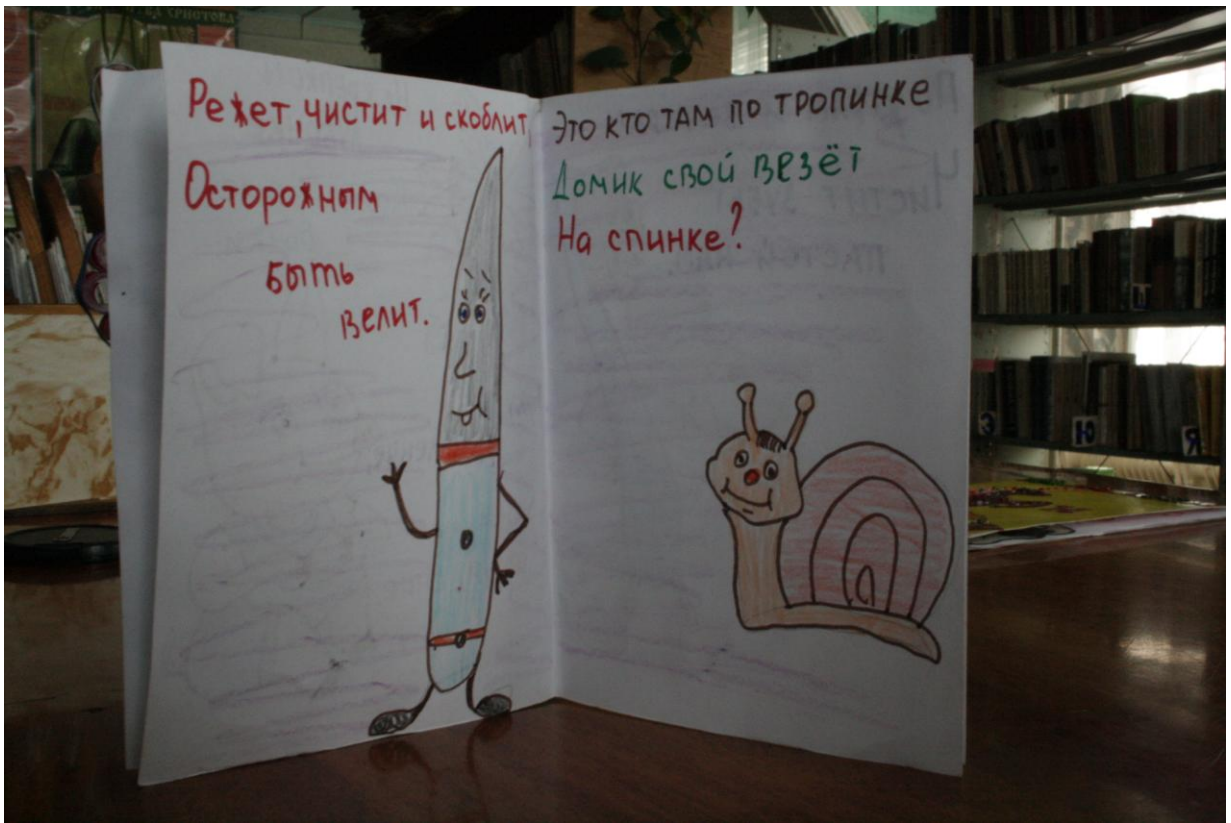 Режет, чистит и скоблит,
Осторожным
быть
велит.
Это кто там по тропинке
Домик свой везёт
На спинке?
Э
Ю
Я